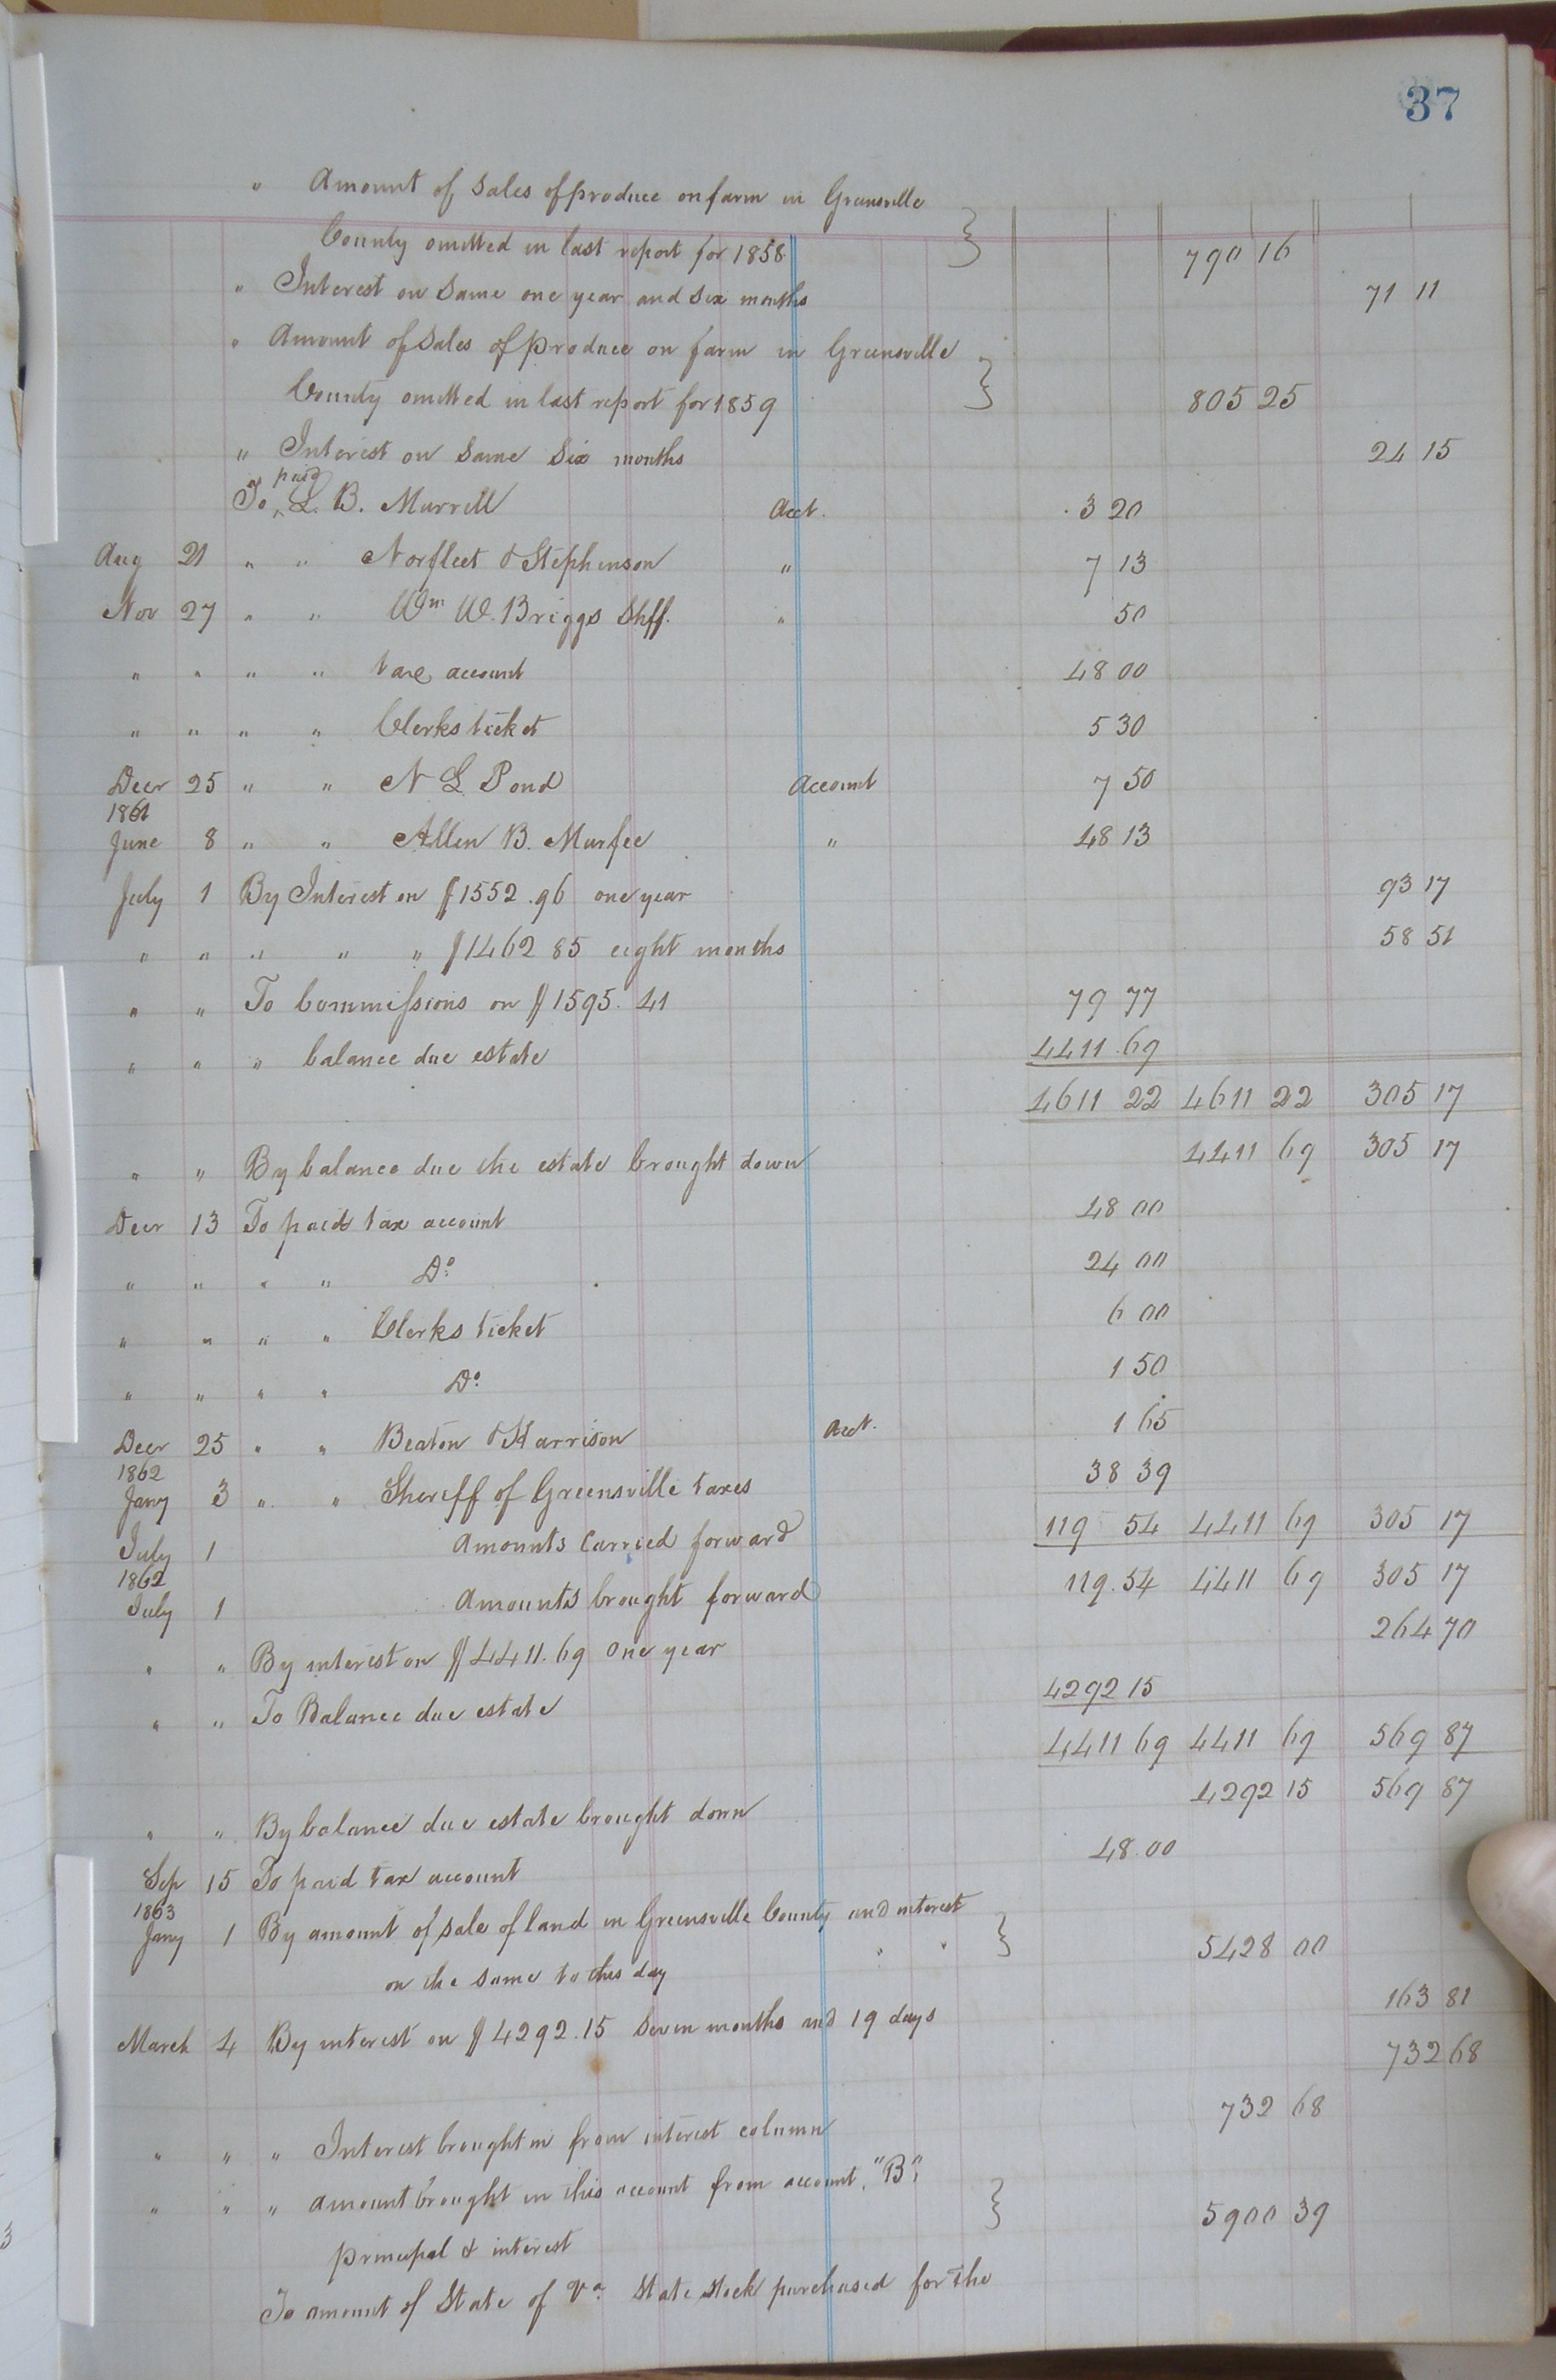 37
" Amount of Sales of produce on farm in Greensville
County omitted in last report for 1858 } 790 16
" Interest on same one year and six months 71 11
" Amount of Sales of produce on farm in Greensville
County omitted in last report for 1859 } 805 25
" Interest on same six months 24 15
To paid L. B. Murrell Acct. 3 20
Aug 21 " " Norfleet & Stephenson " 7 13
Nov 27 " " Wm W. Briggs Shff. " 50
" " " " tax account 48 00
" " " " Clerks ticket 5 30
Decr 25 " " N L Pond Account 7 50
1861
June 8 " " Allen B. Murfee " 48 13
July 1 By Interest on $1552.96 one year 93 17
" " " " " $1462 85 eight months 58 51
" " To Commissions on $1595.41 79 77
" " " balance due estate 4411.69
4611 22 4611 22 305 17
" " By balance due the estate brought down 4411 69 305 17
Decr 13 To paid tax account 48 00
" " " " Do. 24 00
" " " " Clerks ticket 6 00
" " " " Do. 1 50
Decr 25 " " Beaton & Harrison Acct. 1 65
1862
Jany 3 " " Sheriff of Greensville taxes 38 39
July 1 Amounts Carried forward 119 54 4411 69 305 17
1862
July 1 Amounts brought forward 119.54 4411 69 305 17
" " By interest on $4411.69 One year 264 70
" " To Balance due estate 4292 15
4411 69 4411 69 569 87
" " By balance due estate brought down 4292 15 569 87
Sep 15 To paid tax account 48.00
1863
Jany 1 By amount of sale of land in Greensville County and interest
on the same to this day } 5428 00
March 4 By interest on $4292.15 Seven months and 19 days 163 81
732 68
" " " Interest brought in from interest column 732 68
" " " amount brought in this account from account "B"
principal & interest } 5900 39
To amount of State of Va. State stock purchased for the
3